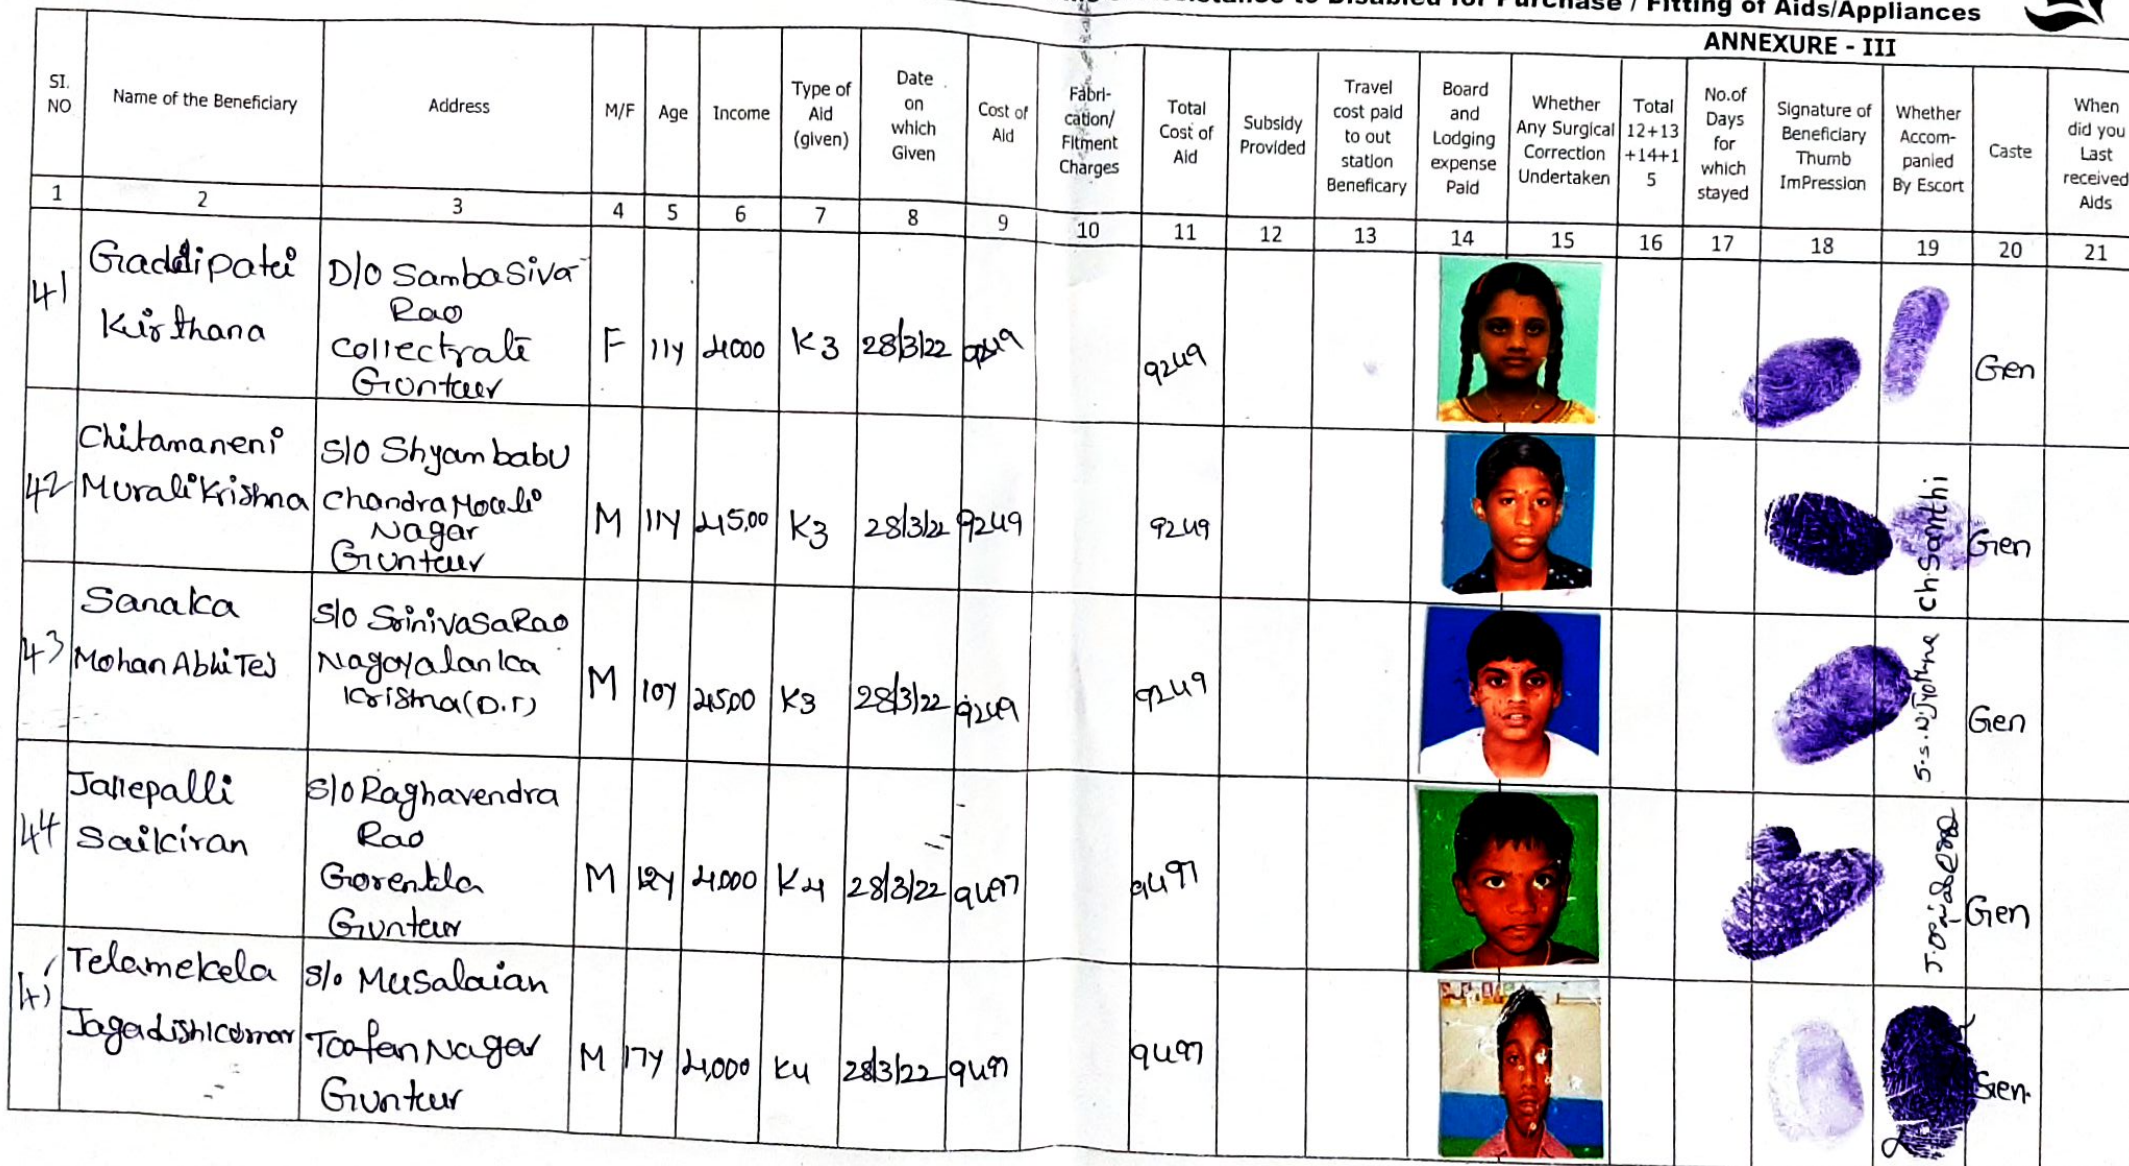 Assistance to Disabled for Purchase / Fitting of Aids/Appliances
ANNEXURE - III
SI. NO
Name of the Beneficiary
Address
M/F
Age
Income
Type of Aid (given)
Date on which Given
Cost of Aid
Fabri-cation/ Fitment Charges
Total Cost of Aid
Subsidy Provided
Travel cost paid to out station Beneficary
Board and Lodging expense Paid
Whether Any Surgical Correction Undertaken
Total 12+13 +14+1 5
No.of Days for which stayed
Signature of Beneficiary Thumb ImPression
Whether Accom-panied By Escort
Caste
When did you Last received Aids
1 2 3 4 5 6 7 8 9 10 11 12 13 14 15 16 17 18 19 20 21
41 Gaddipati Kirthana
D/O SambaSiva Rao
Collectrate
Guntur
F 11y 4000 K3 28/3/22 9249 9249 Gen
42 Chitamaneni MuraliKrishna
S/O Shyambabu
Chandra Mouli Nagar
Guntur
M 11y 45,00 K3 28/3/22 9249 9249 Ch. Santhi Gen
43 Sanaka Mohan AbhiTej
S/O SrinivasaRao
Nagayalanka
Krishna(D.T)
M 10y 4500 K3 28/3/22 9249 9249 S.S.N.Jyothna Gen
44 Jallepalli Saikiran
S/O Raghavendra Rao
Gorentla
Guntur
M 12y 4,000 K4 28/3/22 9497 9497 Gen
45 Telamekela Jagadishkumar
S/o Musalaian
Toofan Nagar
Guntur
M 17y 4,000 K4 28/3/22 9497 9497 Gen.